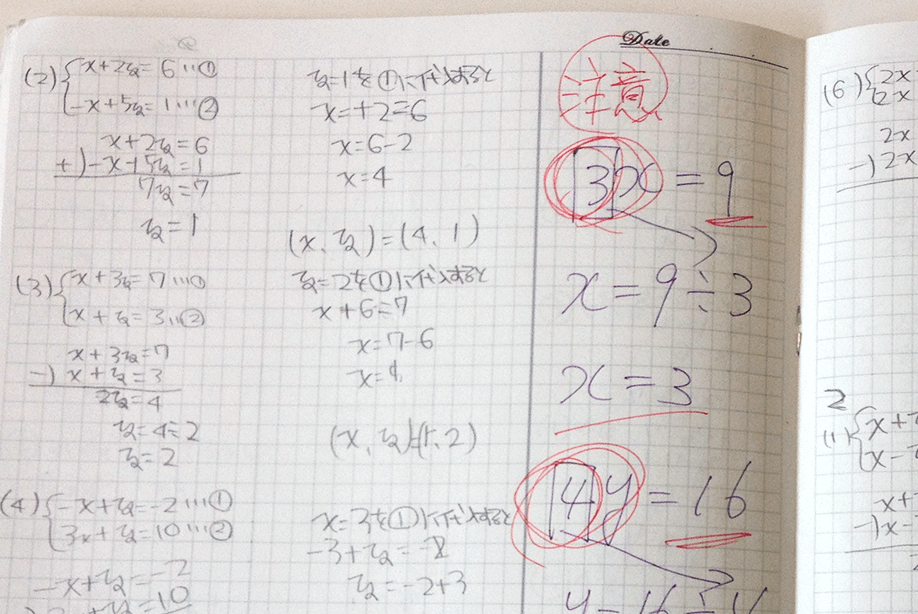 Date
(2) x+2y=6…①
-x+5y=1…②
x+2y=6
+) -x+5y=1
7y=7
y=1
y=1を①に代入すると
x=+2=6
x=6-2
x=4
(x, y)=(4, 1)
(3) x+3y=7…①
x+y=3…②
x+3y=7
-) x+y=3
2y=4
y=4÷2
y=2
y=2を①に代入すると
x+6=7
x=7-6
x=1
(x, y)=(1, 2)
(4) -x+y=-2…①
3x+y=10…②
-x+y=-2
x=3を①に代入すると
-3+y=-2
y=-2+3
注意
3x=9
x=9÷3
x=3
4y=16
(6) 2x
2x
2x
-) 2x
2
(1) x+
x-
x+
-) x-